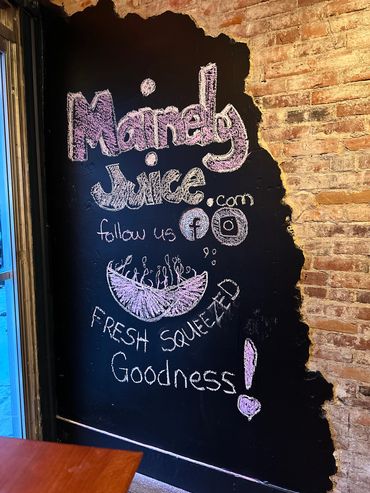 Mainely
Juice.com
follow us f
FRESH SQUEEZED
Goodness!